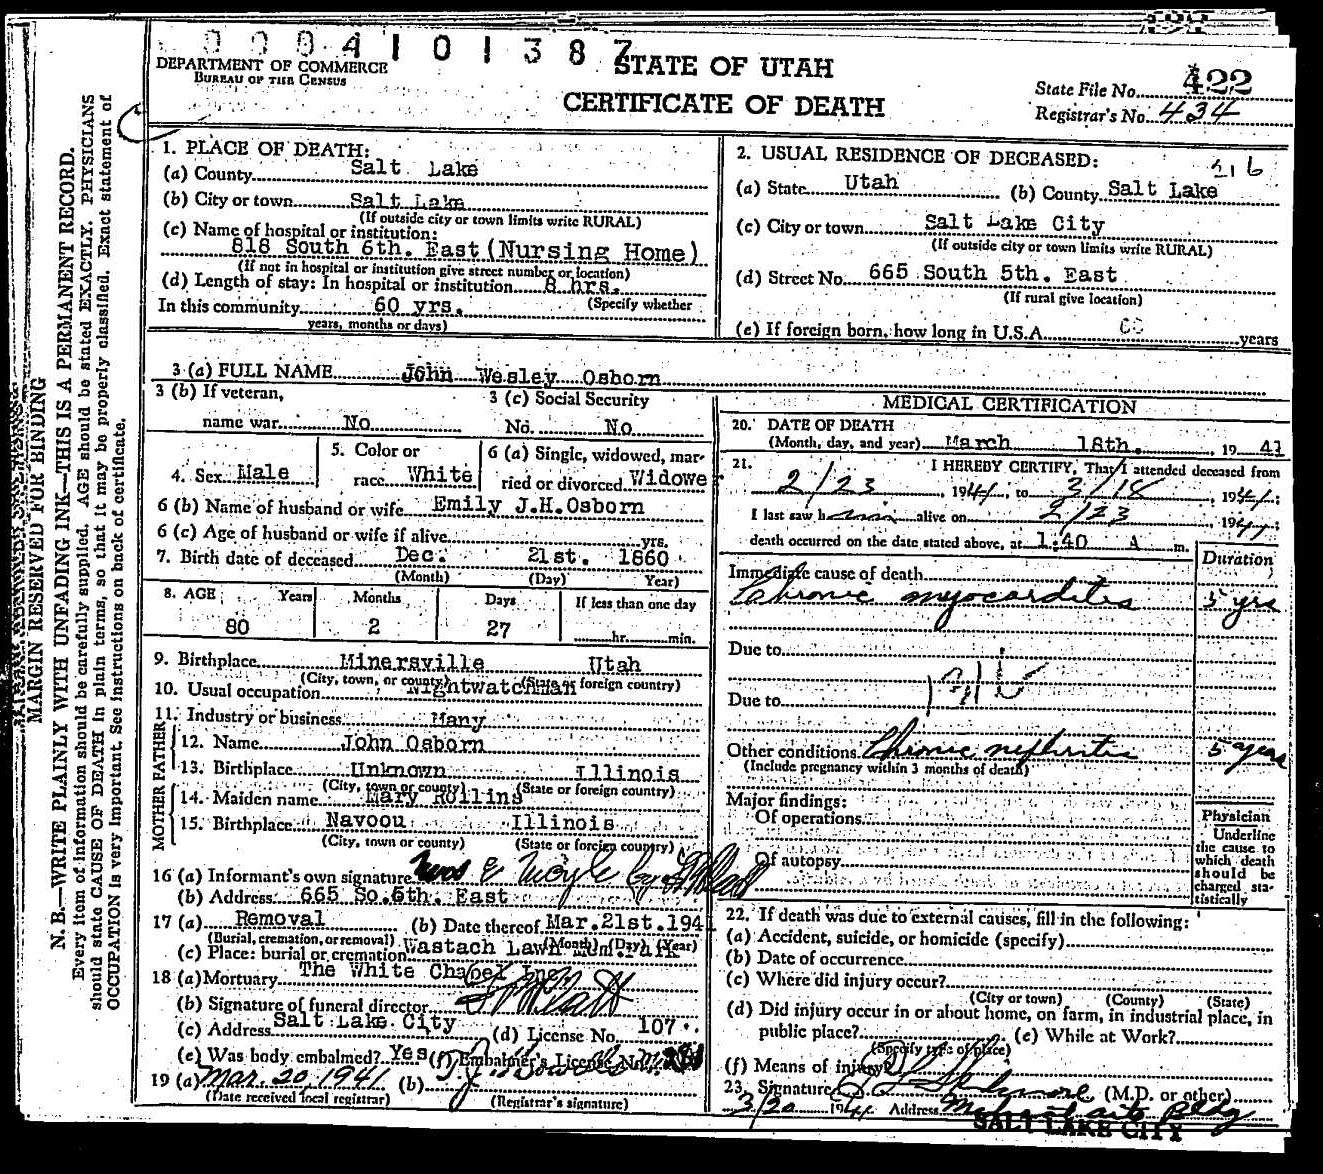 0004101387
DEPARTMENT OF COMMERCE
BUREAU OF THE CENSUS
STATE OF UTAH
CERTIFICATE OF DEATH
State File No. 422
Registrar's No. 434
MARGIN RESERVED FOR BINDING
N. B.—WRITE PLAINLY WITH UNFADING INK—THIS IS A PERMANENT RECORD.
Every item of information should be carefully supplied. AGE should be stated EXACTLY. PHYSICIANS
should state CAUSE OF DEATH in plain terms, so that it may be properly classified. Exact statement of
OCCUPATION is very important. See instructions on back of certificate.
1. PLACE OF DEATH:
(a) County Salt Lake
(b) City or town Salt Lake
(If outside city or town limits write RURAL)
(c) Name of hospital or institution:
818 South 6th. East (Nursing Home)
(If not in hospital or institution give street number or location)
(d) Length of stay: In hospital or institution 8 hrs.
In this community 60 yrs. (Specify whether
years, months or days)
2. USUAL RESIDENCE OF DECEASED: 216
(a) State Utah (b) County Salt Lake
(c) City or town Salt Lake City
(If outside city or town limits write RURAL)
(d) Street No. 665 South 5th. East
(If rural give location)
(e) If foreign born, how long in U.S.A. years
3 (a) FULL NAME John Wesley Osborn
3 (b) If veteran,
name war No
3 (c) Social Security
No. No
4. Sex Male
5. Color or
race White
6 (a) Single, widowed, mar-
ried or divorced Widowe
6 (b) Name of husband or wife Emily J.H.Osborn
6 (c) Age of husband or wife if alive yrs.
7. Birth date of deceased Dec. 21st. 1860
(Month) (Day) Year)
8. AGE Years Months Days If less than one day
80 2 27 hr. min.
9. Birthplace Minersville Utah
(City, town, or county) (State or foreign country)
10. Usual occupation Nightwatchman
11. Industry or business Many
FATHER
12. Name John Osborn
13. Birthplace Unknown Illinois
(City, town or county) (State or foreign country)
MOTHER
14. Maiden name Mary Rollins
15. Birthplace Navoou Illinois
(City, town or county) (State or foreign country)
16 (a) Informant's own signature
(b) Address 665 So.6th. East
17 (a) Removal (b) Date thereof Mar.21st.1941
(Burial, cremation, or removal) (Month) (Day) (Year)
(c) Place: burial or cremation Wastach Lawn Mem.Park
18 (a) Mortuary The White Chapel Inc.
(b) Signature of funeral director
(c) Address Salt Lake City (d) License No. 107
(e) Was body embalmed? Yes (f) Embalmer's License No.
19 (a) Mar. 20, 1941 (b)
(Date received local registrar) (Registrar's signature)
MEDICAL CERTIFICATION
20. DATE OF DEATH
(Month, day, and year) March 18th. 1941
21. I HEREBY CERTIFY, That I attended deceased from
2/23, 1941, to 3/18, 1941;
I last saw him alive on 2/23 1941;
death occurred on the date stated above, at 1:40 A m.
Duration
Immediate cause of death
Chronic myocarditis 5 yrs
Due to
Due to
Other conditions Chronic nephritis 5 years
(Include pregnancy within 3 months of death)
Major findings:
Of operations
Of autopsy
Physician
Underline
the cause to
which death
should be
charged sta-
tistically
22. If death was due to external causes, fill in the following:
(a) Accident, suicide, or homicide (specify)
(b) Date of occurrence
(c) Where did injury occur?
(City or town) (County) (State)
(d) Did injury occur in or about home, on farm, in industrial place, in
public place? (e) While at Work?
(Specify type of place)
(f) Means of injury
23. Signature (M.D. or other)
3/20 1941 Address Bldg
SALT LAKE CITY